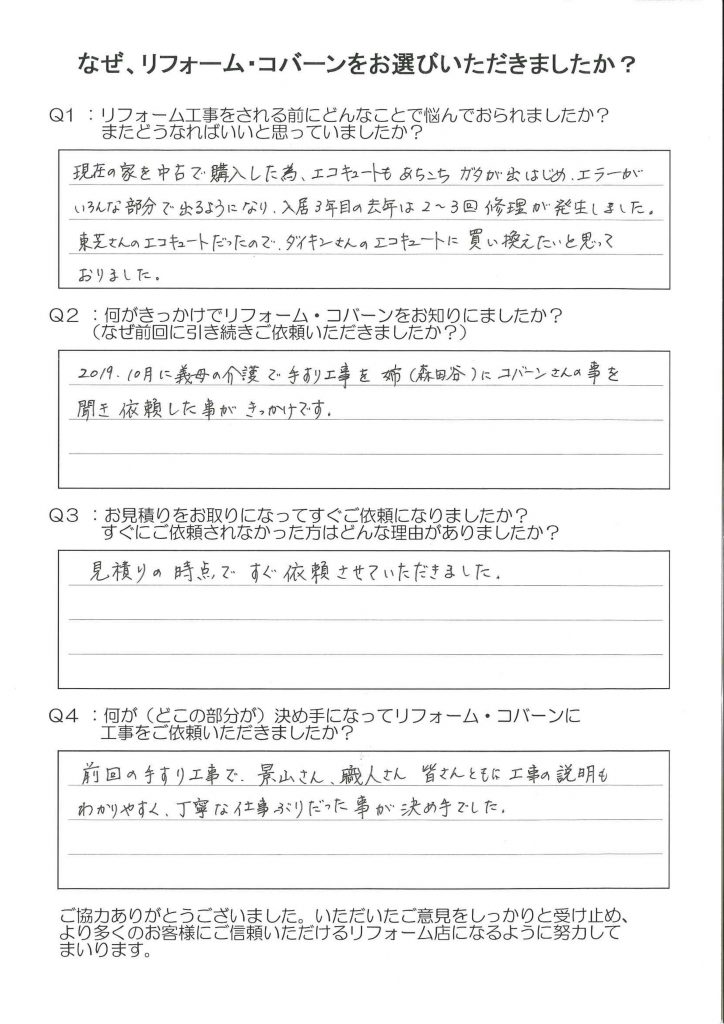 なぜ、リフォーム・コバーンをお選びいただきましたか？
Q1 ：リフォーム工事をされる前にどんなことで悩んでおられましたか？
またどうなればいいと思っていましたか？
現在の家を中古で購入した為、エコキュートもあちこちガタが出はじめ、エラーが
いろんな部分で出るようになり、入居3年目の去年は2～3回修理が発生しました。
東芝さんのエコキュートだったので、ダイキンさんのエコキュートに買い換えたいと思って
おりました。
Q2 ：何がきっかけでリフォーム・コバーンをお知りにましたか？
（なぜ前回に引き続きご依頼いただきましたか？）
2019.10月に義母の介護で手すり工事を姉（森田谷）にコバーンさんの事を
聞き依頼した事がきっかけです。
Q3 ：お見積りをお取りになってすぐご依頼になりましたか？
すぐにご依頼されなかった方はどんな理由がありましたか？
見積りの時点ですぐ依頼させていただきました。
Q4 ：何が（どこの部分が）決め手になってリフォーム・コバーンに
工事をご依頼いただきましたか？
前回の手すり工事で、景山さん、職人さん皆さんともに工事の説明も
わかりやすく、丁寧な仕事ぶりだった事が決め手でした。
ご協力ありがとうございました。いただいたご意見をしっかりと受け止め、
より多くのお客様にご信頼いただけるリフォーム店になるように努力して
まいります。